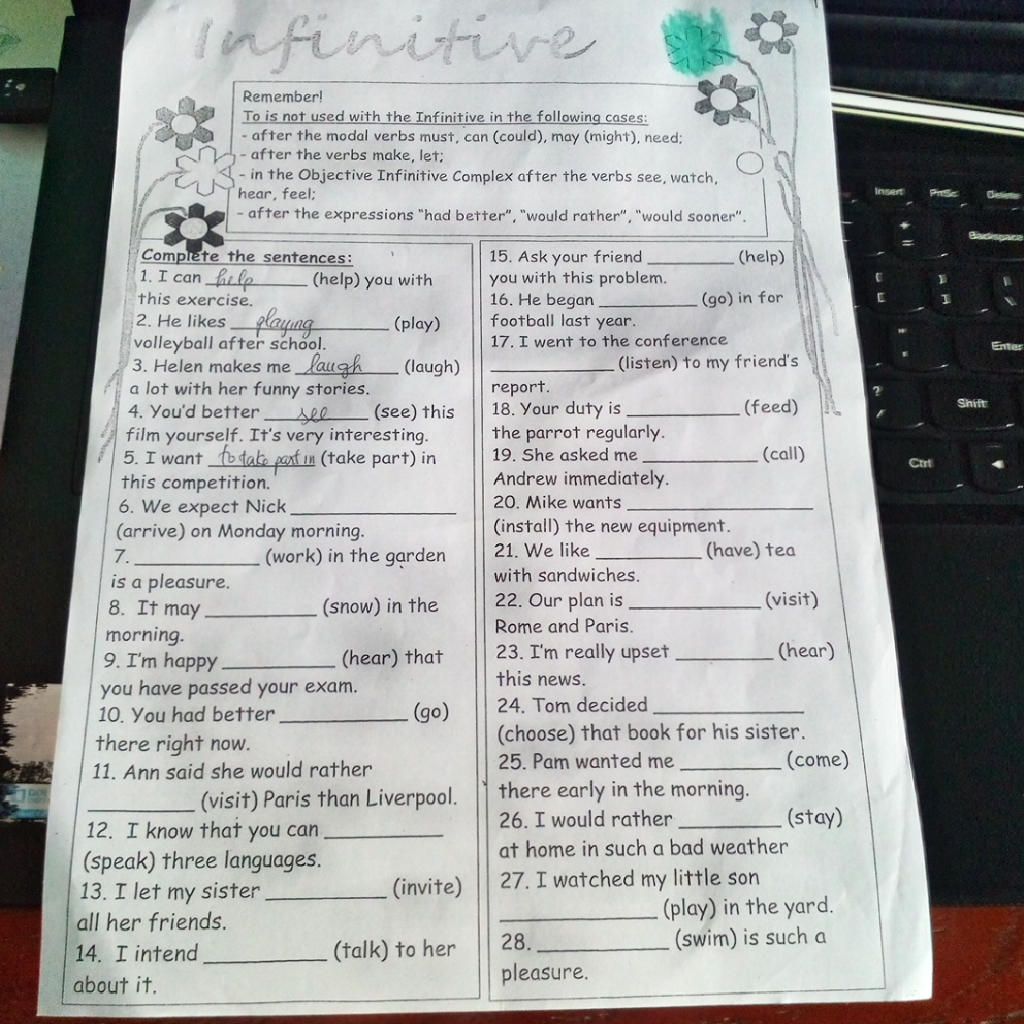 Infinitive
Remember!
To is not used with the Infinitive in the following cases:
- after the modal verbs must, can (could), may (might), need;
- after the verbs make, let;
- in the Objective Infinitive Complex after the verbs see, watch,
hear, feel;
- after the expressions “had better”, “would rather”, “would sooner”.
Complete the sentences:
1. I can help (help) you with
this exercise.
2. He likes playing (play)
volleyball after school.
3. Helen makes me laugh (laugh)
a lot with her funny stories.
4. You'd better see (see) this
film yourself. It's very interesting.
5. I want to take part in (take part) in
this competition.
6. We expect Nick ____________
(arrive) on Monday morning.
7. ____________ (work) in the garden
is a pleasure.
8. It may ____________ (snow) in the
morning.
9. I'm happy ____________ (hear) that
you have passed your exam.
10. You had better ____________ (go)
there right now.
11. Ann said she would rather
____________ (visit) Paris than Liverpool.
12. I know that you can ____________
(speak) three languages.
13. I let my sister ____________ (invite)
all her friends.
14. I intend ____________ (talk) to her
about it.
15. Ask your friend ____________ (help)
you with this problem.
16. He began ____________ (go) in for
football last year.
17. I went to the conference
____________ (listen) to my friend's
report.
18. Your duty is ____________ (feed)
the parrot regularly.
19. She asked me ____________ (call)
Andrew immediately.
20. Mike wants ____________
(install) the new equipment.
21. We like ____________ (have) tea
with sandwiches.
22. Our plan is ____________ (visit)
Rome and Paris.
23. I'm really upset ____________ (hear)
this news.
24. Tom decided ____________
(choose) that book for his sister.
25. Pam wanted me ____________ (come)
there early in the morning.
26. I would rather ____________ (stay)
at home in such a bad weather
27. I watched my little son
____________ (play) in the yard.
28. ____________ (swim) is such a
pleasure.
Insert PrtSc Delete
Backspace
Enter
Shift
Ctrl